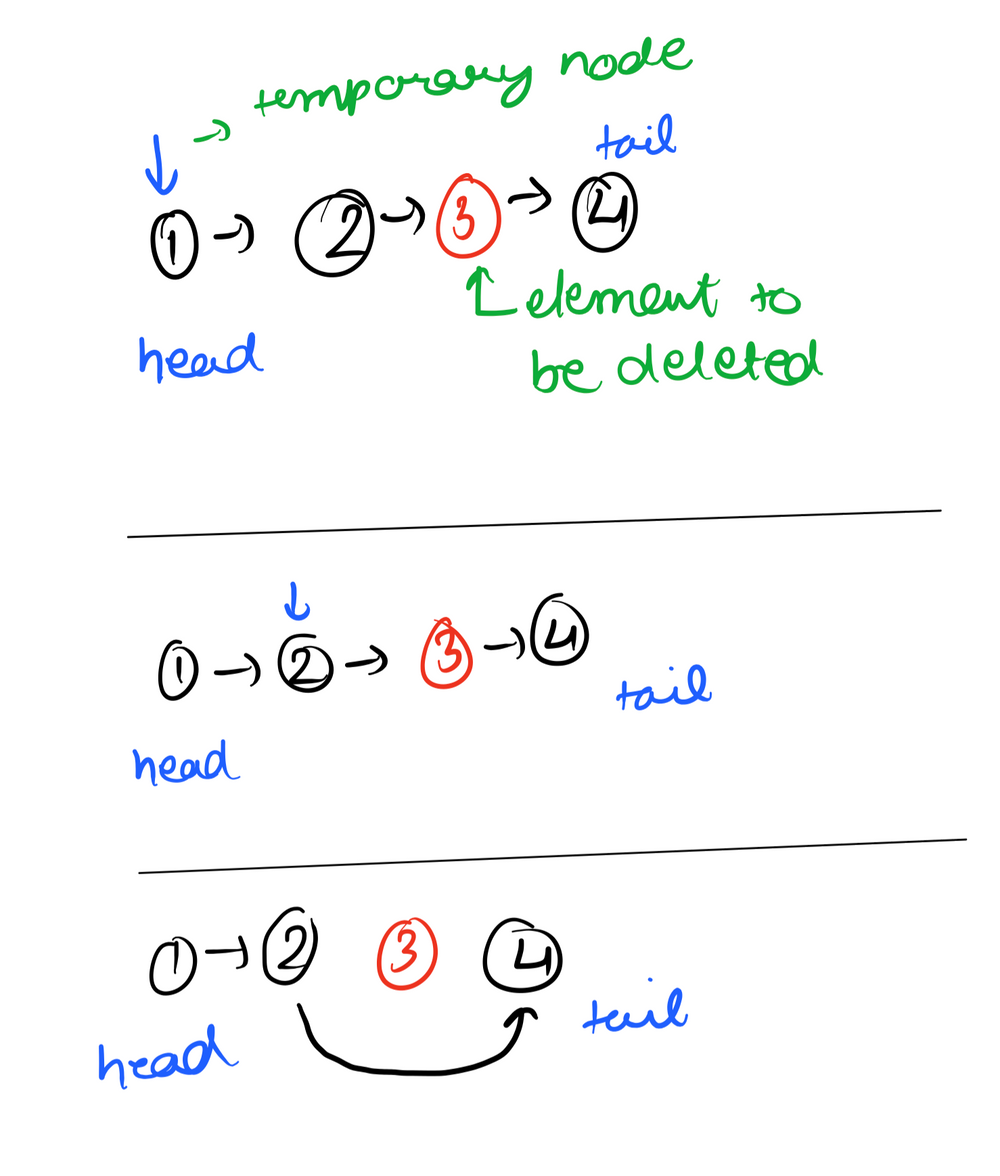 → temporary node
↓ tail
1 → 2 → 3 → 4
↑ element to
head
be deleted
↓
1 → 2 → 3 → 4
tail
head
1 → 2 3 4
tail
head